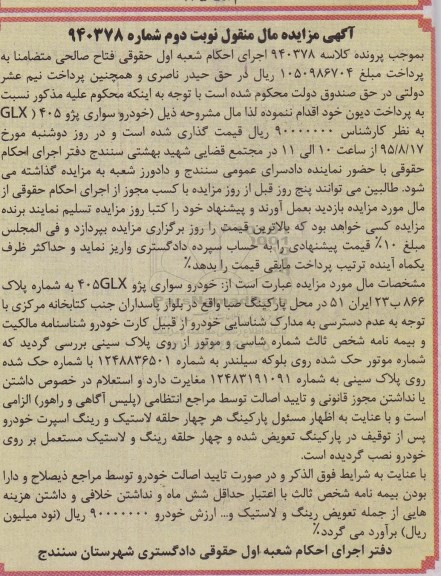 آگهی مزایده مال منقول نوبت دوم شماره ۹۴۰۳۷۸
بموجب پرونده کلاسه ۹۴۰۳۷۸ اجرای احکام شعبه اول حقوقی فتاح صالحی متضامنا به
پرداخت مبلغ ۱۰۵۰۹۸۶۷۰۴ ریال در حق حیدر ناصری و همچنین پرداخت نیم عشر
دولتی در حق صندوق دولت محکوم شده است با توجه به اینکه محکوم علیه مذکور نسبت
به پرداخت دیون خود اقدام ننموده لذا مال مشروحه ذیل (خودرو سواری پژو ۴۰۵ ( GLX
به نظر کارشناس ۹۰۰۰۰۰۰۰ ریال قیمت گذاری شده است و در روز دوشنبه مورخ
۹۵/۸/۱۷ از ساعت ۱۰ الی ۱۱ در مجتمع قضایی شهید بهشتی سنندج دفتر اجرای احکام
حقوقی با حضور نماینده دادسرای عمومی سنندج و دادورز شعبه به مزایده گذاشته می
شود. طالبین می توانند پنج روز قبل از روز مزایده با کسب مجوز از اجرای احکام حقوقی از
مال مورد مزایده بازدید بعمل آورند و پیشنهاد خود را کتبا روز مزایده تسلیم نمایند برنده
مزایده کسی خواهد بود که بالاترین قیمت را روز برگزاری مزایده بپردازد و فی المجلس
مبلغ ۱۰٪ قیمت پیشنهادی را به حساب سپرده دادگستری واریز نماید و حداکثر ظرف
یکماه آینده ترتیب پرداخت مابقی قیمت را بدهد٪
مشخصات مال مورد مزایده عبارت است از: خودرو سواری پژو ۴۰۵GLX به شماره پلاک
۸۶۶ ب۲۳ ایران ۵۱ در محل پارکینگ صبا واقع در بلوار پاسداران جنب کتابخانه مرکزی با
توجه به عدم دسترسی به مدارک شناسایی خودرو از قبیل کارت خودرو شناسنامه مالکیت
و بیمه نامه شخص ثالث شماره شاسی و موتور از روی پلاک سینی بررسی گردید که
شماره موتور حک شده روی بلوکه سیلندر به شماره ۱۲۴۸۸۳۶۵۰۱ با شماره حک شده
روی پلاک سینی به شماره ۱۲۴۸۳۱۹۱۰۹۱ مغایرت دارد و استعلام در خصوص داشتن
یا نداشتن مجوز قانونی و تایید اصالت توسط مراجع انتظامی (پلیس آگاهی و راهور) الزامی
است و با عنایت به اظهار مسئول پارکینگ هر چهار حلقه لاستیک و رینگ اسپرت خودرو
پس از توقیف در پارکینگ تعویض شده و چهار حلقه رینگ و لاستیک مستعمل بر روی
خودرو نصب گردیده است.
با عنایت به شرایط فوق الذکر و در صورت تایید اصالت خودرو توسط مراجع ذیصلاح و دارا
بودن بیمه نامه شخص ثالث با اعتبار حداقل شش ماه و نداشتن خلافی و داشتن هزینه
هایی از جمله تعویض رینگ و لاستیک و... ارزش خودرو ۹۰۰۰۰۰۰۰ ریال (نود میلیون
ریال) برآورد می گردد٪
دفتر اجرای احکام شعبه اول حقوقی دادگستری شهرستان سنندج